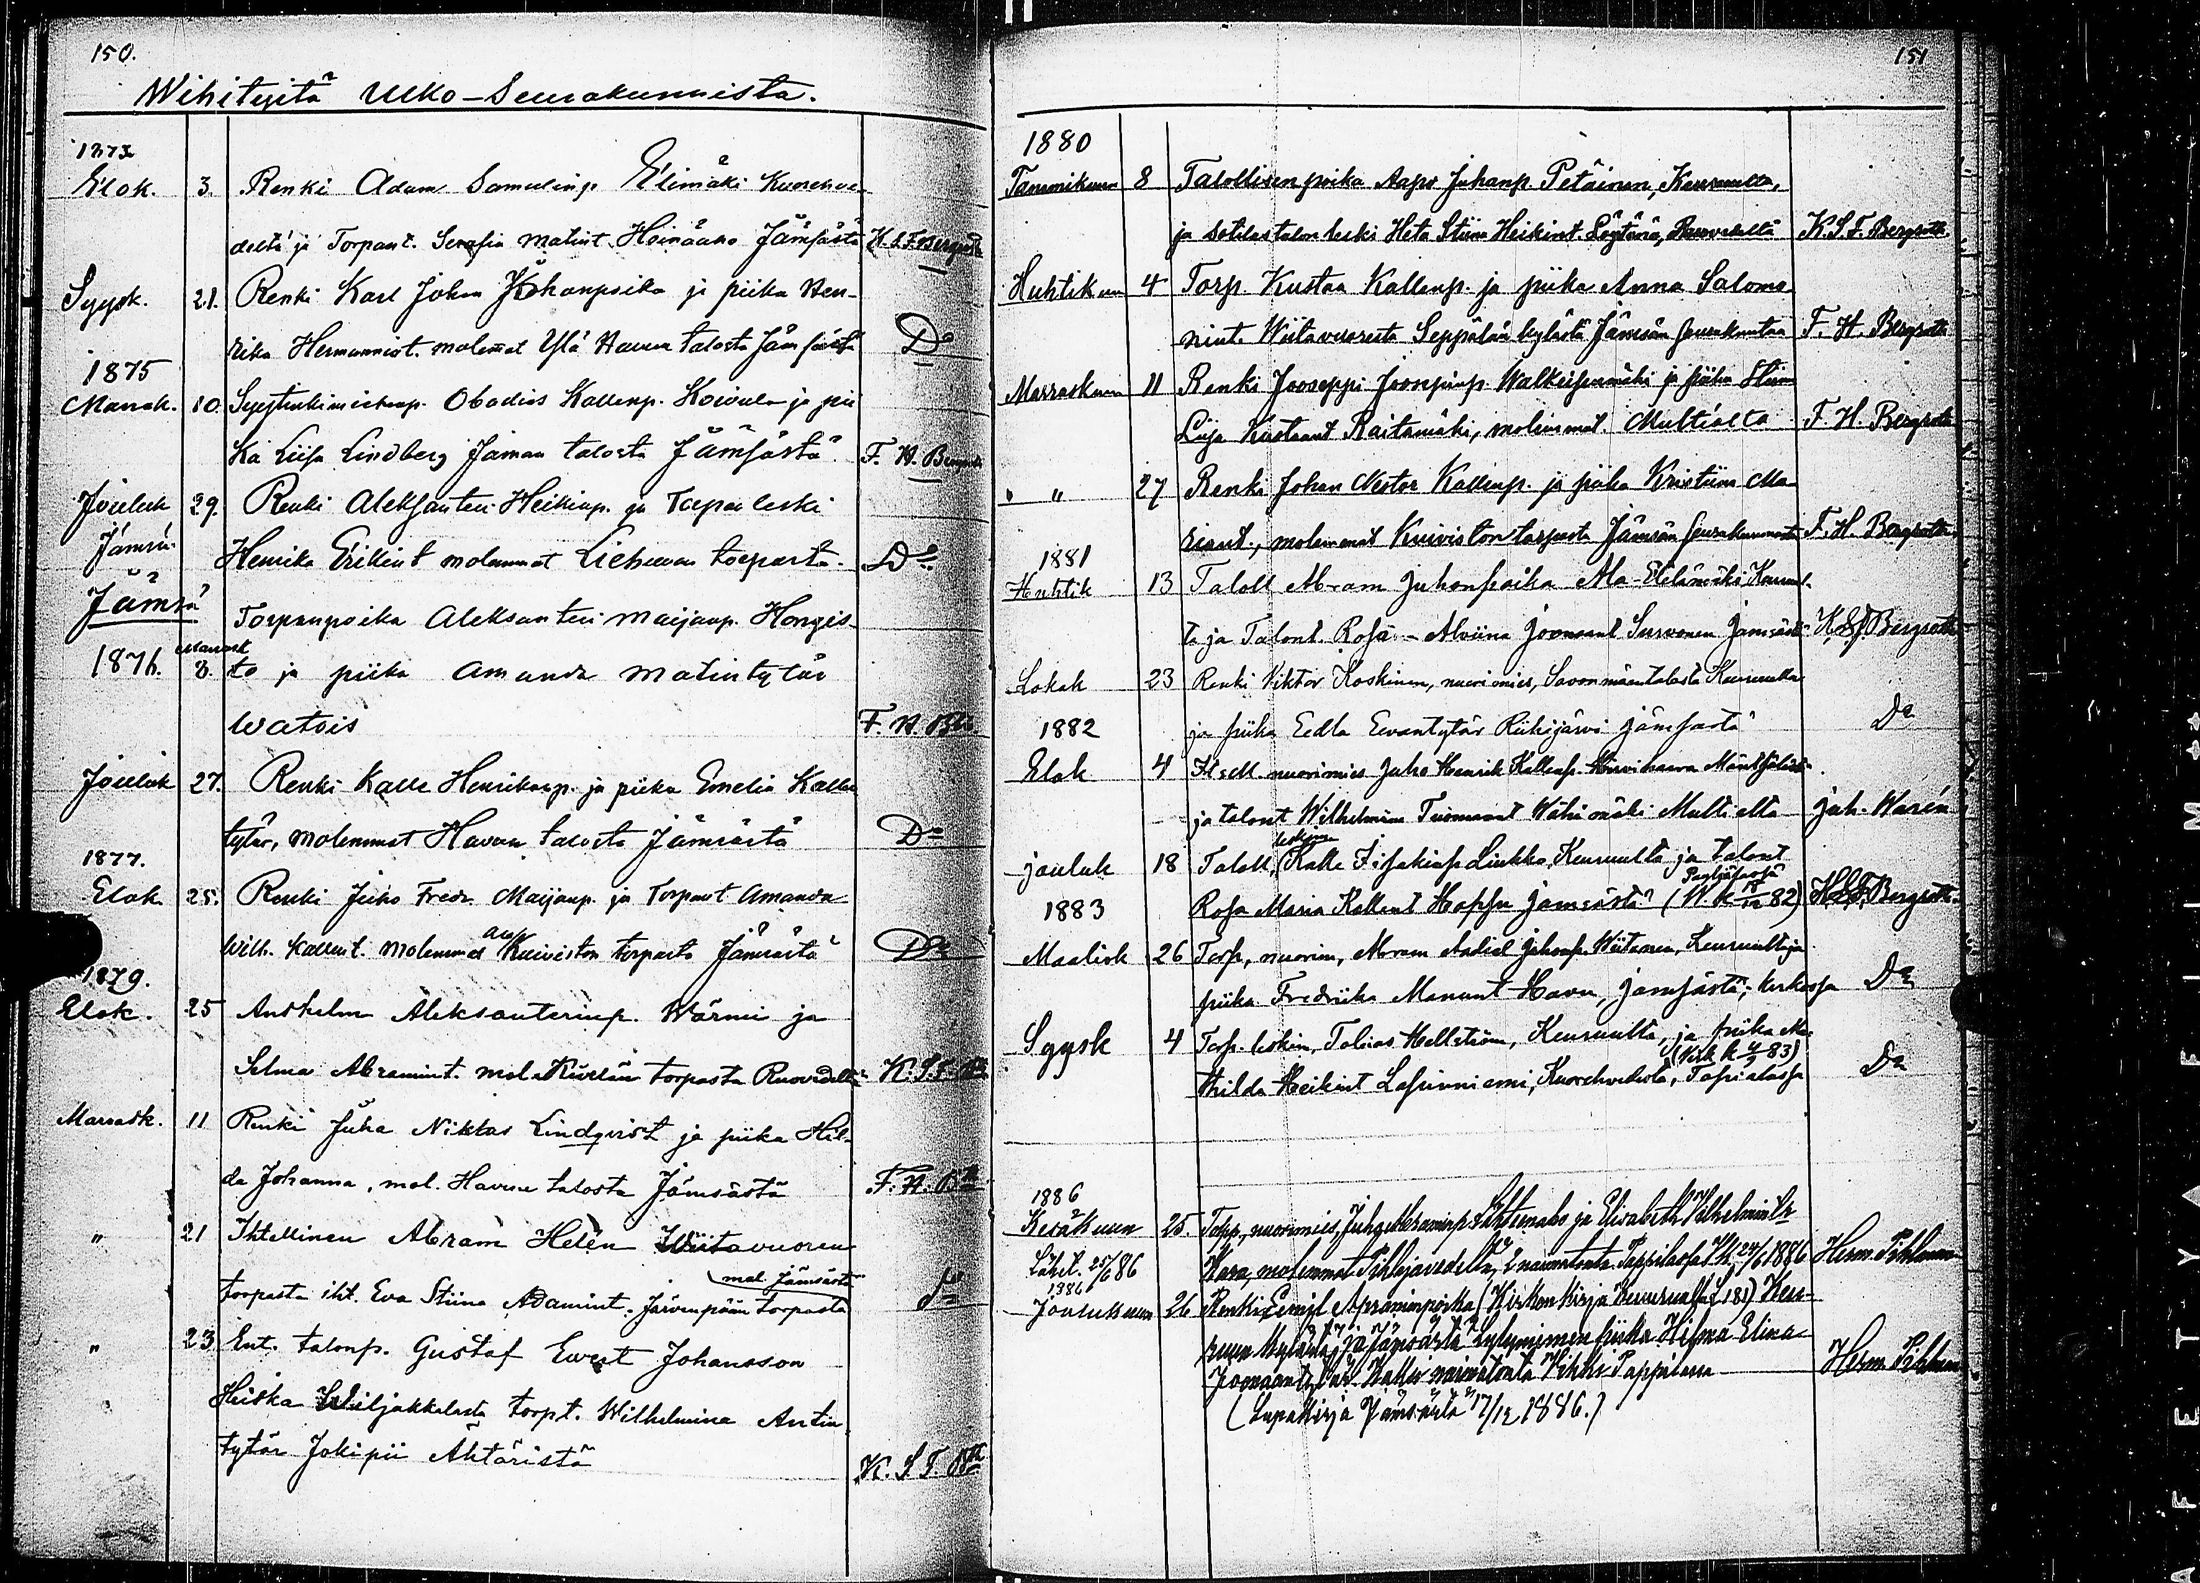 150.
Wihityitä Ulko-Seurakunnista.
1873
Elok. 3. Renki Adam Samulinp. Elimäki Kuorehve-
deltä ja Torpant. Serafia Matint. Heinäaho Jämsästä K. S. F. Bergroth
Syysk. 21. Renki Karl Johan Johanpoika ja piika Hen-
rika Hermannint. molemat Ylä Havun talosta Jämsästä Do
1875
Marrask. 10. Obadias Kallenp. Koivula ja pii
ka Liisa Lindberg Jaman talosta Jämsästä. F. H. Bergroth
Jouluk 29. Renki Aleksanteri Heikinp. ja Torpan leski
Jämsä. Henrika Erikint molemmat Liehuvan torpasta. Do
Jämsä
Torpanpoika Aleksanteri Maijanp. Hongis-
1876. Marrask 3. to ja piika Amanda Matintytär
Watois F. H. Bth.
Jouluk 27. Renki Kalle Henrikanp. ja piika Emelia Kallen
tytär, molemmat Havun talosta Jämsästä Do
1877.
Elok. 25. Renki Juho Fredr. Maijanp. ja Torpant Amanda
Wilh. Kallent. molemmat Ala Kuiviston torpasta Jämsästä Do
1879.
Elok. 25 Anshelm Aleksanterinp. Wärmi ja
Selma Abramint. mol. torpasta Ruovedeltä K. S. F. Bth
Marrask. 11 Renki Juha Niklas Lindqvist ja piika Hil-
da Johanna, mol. Havun talosta Jämsästä F. H. Bth
" 21 Ihtellinen Abram Helén Wiitavuoren
mol. Jämsästä
torpasta iht. Eva Stiina Adamint. Järvenpään torpasta Do
" 23 Ent. talonp. Gustaf Evert Johansson
Heiska Wiljakkalasta torpt. Wilhelmina Antin
tytär Jokipii Ähtäristä K. S. F. Bth
151
1880
Tammikuun 8 Talollisen poika Aapo Juhanp. Petäinen, Keuruulta,
ja leski Heta Stiina Heikint. Löytänä, Ruovedeltä K. S. F. Bergroth
Huhtikuun 4 Torp. Kustaa Kallenp. ja piika Anna Salomo
nint. Wiitavuoresta Seppälän kylästä Jämsän seurakuntaa F. H. Bergroth
Marraskuun 11 Renki Jooseppi Joosepinp. Walkeisenmäki ja piika Stiina
Liisa Kustaant Raitamäki, molemmat Multialta F. H. Bergroth
" " 27 Renki Johan Nestor Kallenp. ja piika Kristiina Ma-
riant., molemmat Kuiviston torpasta Jämsän seurakunnasta F. H. Bergroth
1881
Huhtik 13 Taloll Abram Juhonpoika Ala- Keuruul-
ta ja Talont. Rosa-Alviina Joonaant Survonen Jämsästä K. S. F. Bergroth
Lokak 23 Renki Viktor Koskinen, nuorimies, Savonmäentalosta Keuruulta
1882 ja piika Eedla Eevantytär Riihijärvi Jämsästä Do
Elok 4 nuorimies Juho Henrik Kallenp. Hirvihaara Mäntsälästä
ja talont Wilhelmina Tuomaant Wähämäki Multialta Juh. Warén
Jouluk 18 Taloll. leskim. Kalle Iisakinp Liukko Keuruulta ja talont
1883 Rosa Maria Kallent Happu Jämsästä K. S. F. Bergroth
Maalisk 26 Torp, nuorim, Abram Juhonp. Wiitanen, Keuruulta ja
piika Fredriika Manunt Havu, Jämsästä; kirkossa Do
Syysk 4 Torp. leskim, Tobias Hellström, Keuruulta, ja piika Ma-
thilda Heikint Lapinniemi, Kuorehvedeltä, Do
1886
Kesäkuun 25. Torp, nuorimies, Juho Abraminp. Lehteenaho ja Elisabeth Wilhelmin tr
Kara, molemmat Pihlajavedeltä, Pappilassa 1886 Herm. Pihlman
Lähet. 25/6 86
1886
Joulukuun 26 Renki Eemil Apraminpoika (Kirkonkirja Keuruulla S. 181) Keu-
ruun kylästä, ja piika Hilma Elina
Joonaant. Pappilassa Herm. Pihlman
(Lupakirja Jämsästä 17/12 1886.)